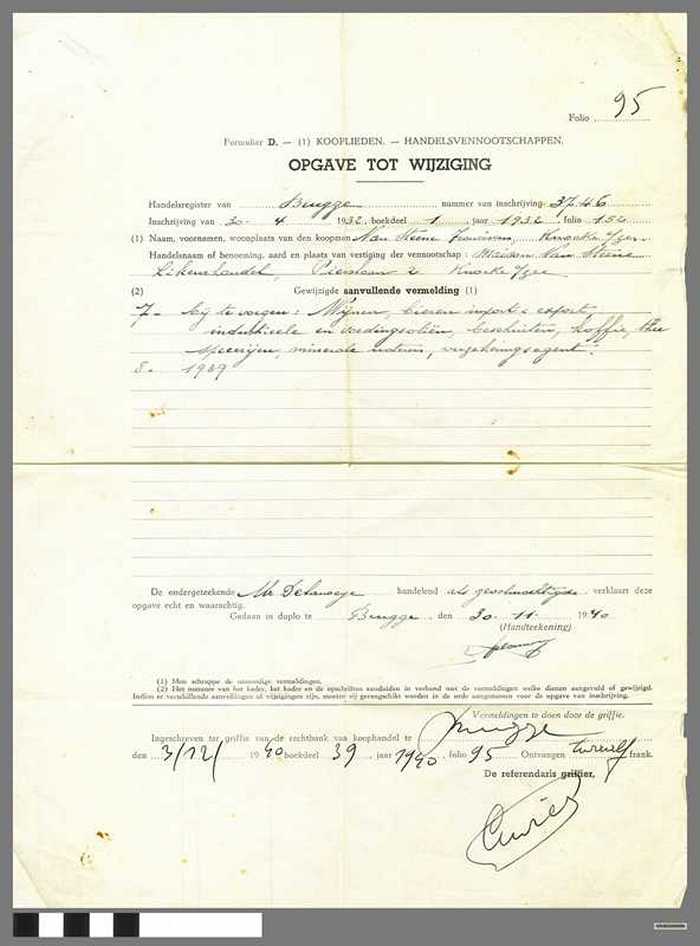 Folio 95
Formulier D. — (1) KOOPLIEDEN. — HANDELSVENNOOTSCHAPPEN.
OPGAVE TOT WIJZIGING
Handelsregister van Brugge nummer van inschrijving 3746
Inschrijving van 30 - 4 1932, boekdeel 1, jaar 1932, folio 152
(1) Naam, voornamen, woonplaats van den koopman Van Steene Knocke
Handelsnaam of benoeming, aard en plaats van vestiging der vennootschap : Van Steene
Likeurhandel, 2 Knocke
(2) Gewijzigde aanvullende vermelding (1)
7 - bij te voegen : Wijnen, bieren import & export,
industrieele en voedingsoliën, beschuiten, koffie, thee
specerijen, minerale waters, verzekeringsagent.
8 - 1939
De ondergeteekende Mr handelend als gevolmachtigde verklaart deze
opgave echt en waarachtig.
Gedaan in duplo te Brugge, den 30 - 11 - 1940
(Handteekening)
(1) Men schrappe de onnoodige vermeldingen.
(2) Het nummer van het kader, het kader en de opschriften aanduiden in verband met de vermeldingen welke dienen aangevuld of gewijzigd.
Indien er verschillende aanvullingen of wijzigingen zijn, moeten zij gerangschikt worden in de orde aangenomen voor de opgave van inschrijving.
Vermeldingen te doen door de griffie.
Ingeschreven ter griffie van de rechtbank van koophandel te Brugge
den 3/12/ 1940 boekdeel 39, jaar 1940, folio 95 Ontvangen twaalf frank.
De referendaris griffier,